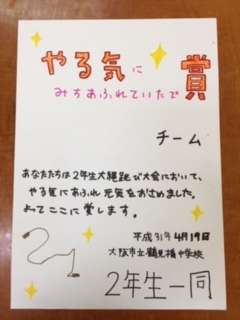 やる気に
みちあふれていたで
賞
チーム
あなたたちは2年生大縄跳び大会において、
やる気にあふれ元気をおさめました。
よってここに賞します。
平成31年4月19日
大阪市立鶴見橋中学校
2年生一同